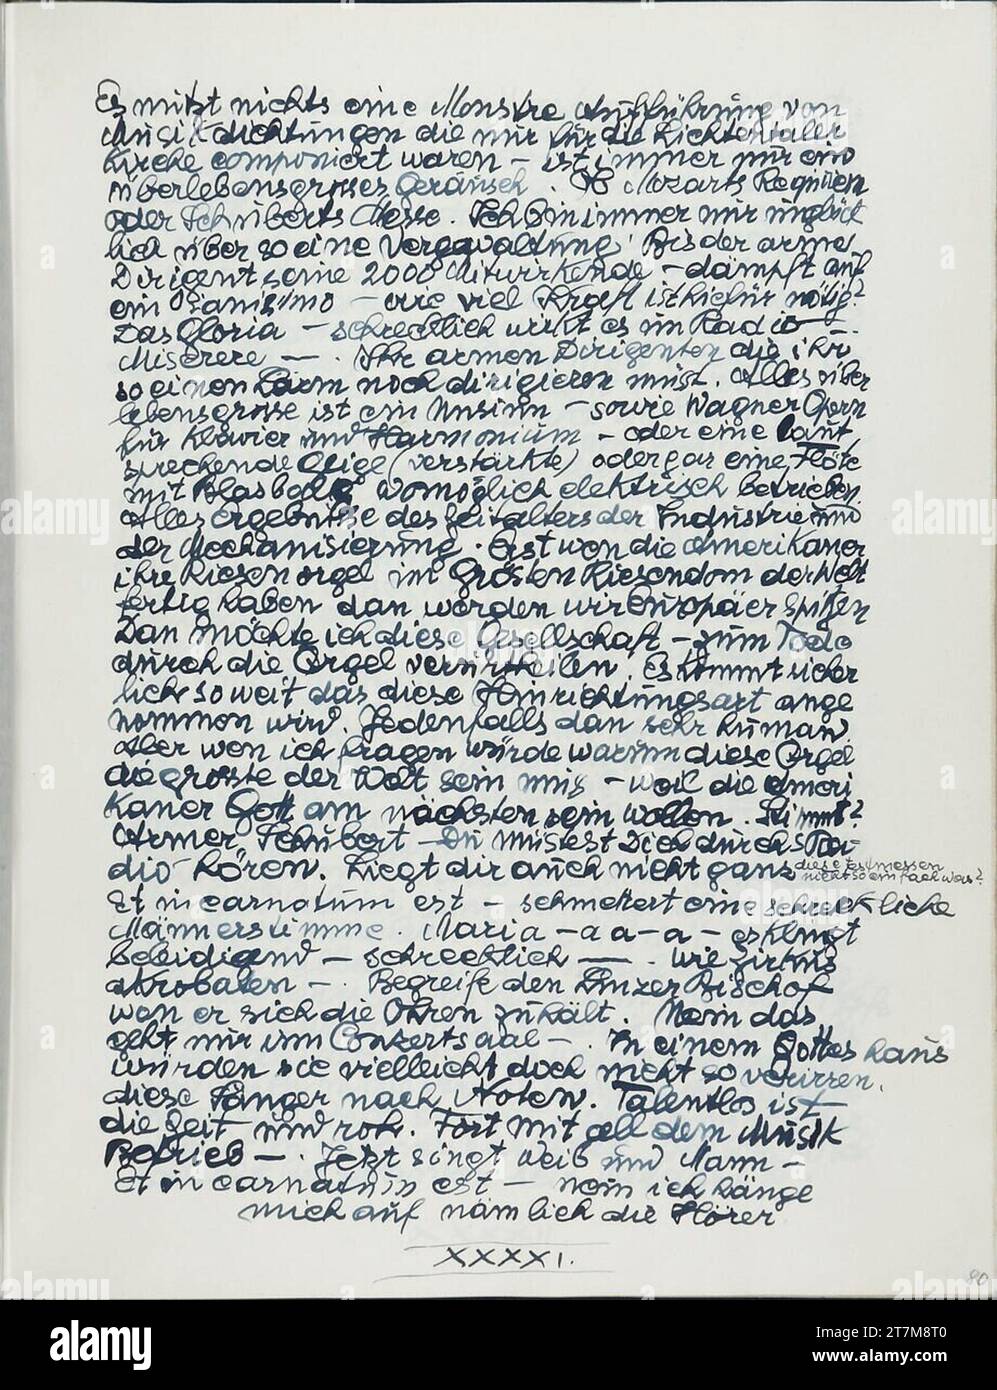 Es nützt nichts eine Monstre Aufführung von
Musikdichtungen die nur für die Lichtentaler
Kirche componiert waren – ist immer nur ein
überlebensgrosses Geräusch. Ob Mozarts Requiem
oder Schuberts Messe. Ich bin immer nur unglück
lich über so eine Vergewaltung. Bis der arme
Dirigent seine 2000 Mitwirkende – dämpft auf
ein Pianisimo – wie viel Kraft ist hiefür nötig?
Das Gloria – schrecklich wirkt es im Radio –.
Miserere –. Ihr armen Dirigenten die ihr
so einen Lärm noch dirigieren müst. Alles über
lebensgrosse ist ein Unsinn – sowie Wagner Opern
für Klavier und Harmonium – oder eine laut
sprechende Geige (verstärkte) oder gar eine Flöte
mit Blasbalg womöglich elektrisch betrieben.
Alles ergebnisse des Zeitalters der Industrie und
der Mechanisierung. Erst wen die Amerikaner
ihre Riesenorgel im Grösten Riesendom der Welt
fertig haben dan werden wir Europäer spitzen
Dan möchte ich diese Gesellschaft – zum Tode
durch die Orgel verurteilen. Es kommt sicher
lich so weit das diese Hinrichtungsart ange
nommen wird. Jedenfalls dan sehr human
Aber wen ich fragen würde warum diese Orgel
die grosste der Welt sein mus – weil die Ameri
kaner Gott am nächsten sein wollen. Stimmt?
Armer Schubert – Du müstest Dich durchs Ra-
dio hören. Liegt dir auch nicht ganz diese Festmessen
nicht so einfach was?
Et incarnatum est – schmettert eine schreckliche
Männerstimme. Maria – a a – a – es klingt
beleidigend – schrecklich –. wie Zirkus
akrobaten –. Begreife den Linzer Bischof
wen er sich die Ohren zuhält. Nein das
geht nur im Conzertsaal –. In einem Gotteshaus
würden sie vielleicht doch nicht so verirren.
diese Sänger nach Noten. Talentlos ist
die Zeit und roh. Fort mit all dem Musik
Betrieb –. Jetzt singt Weib und Mann –
Et in carnatum est – nein ich hänge
mich auf nämlich die Hörer
XXXXI.
80
alamy
Image ID: 2T7M8T0
www.alamy.com